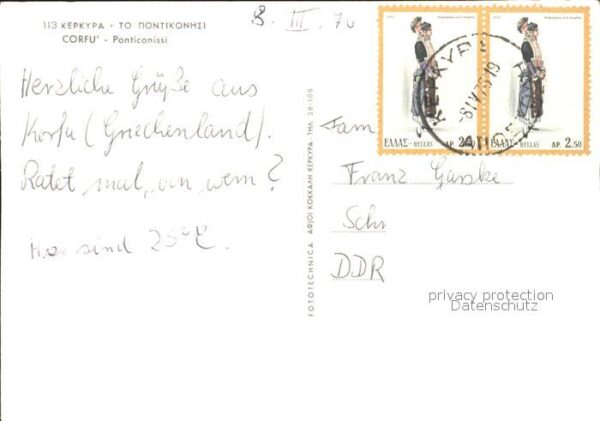 113 ΚΕΡΚΥΡΑ - ΤΟ ΠΟΝΤΙΚΟΝΗΣΙ
CORFU' - Ponticonissi
8. III. 76
Herzliche Grüße aus
Korfu (Griechenland).
Ratet mal, von wem?
Hier sind 25°C.
FOTOTECHNICA ΑΦ|ΟΙ ΚΟΚΚΑΛΗ ΚΕΡΚΥΡΑ - ΤΗΛ. 28-105
ΕΛΛΑΣ - HELLAS ΔΡ. 2.50
ΕΛΛΑΣ - HELLAS ΔΡ. 2.50
ΚΕΡΚΥΡΑ
Fam
Franz
Schr
DDR
privacy protection
Datenschutz